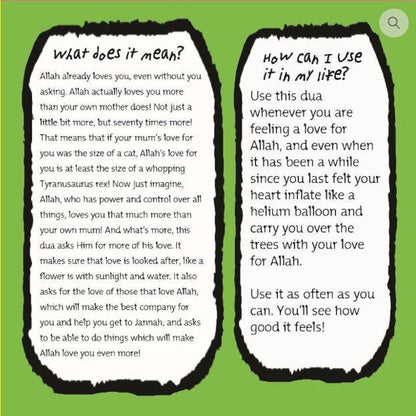 What does it mean?
Allah already loves you, even without you
asking. Allah actually loves you more
than your own mother does! Not just a
little bit more, but seventy times more!
That means that if your mum's love for
you was the size of a cat, Allah's love for
you is at least the size of a whopping
Tyranusaurus rex! Now just imagine,
Allah, who has power and control over all
things, loves you that much more than
your own mum! And what's more, this
dua asks Him for more of his love. It
makes sure that love is looked after, like a
flower is with sunlight and water. It also
asks for the love of those that love Allah,
which will make the best company for
you and help you get to Jannah, and asks
to be able to do things which will make
Allah love you even more!
How can I use
it in my life?
Use this dua
whenever you are
feeling a love for
Allah, and even when
it has been a while
since you last felt your
heart inflate like a
helium balloon and
carry you over the
trees with your love
for Allah.
Use it as often as you
can. You'll see how
good it feels!